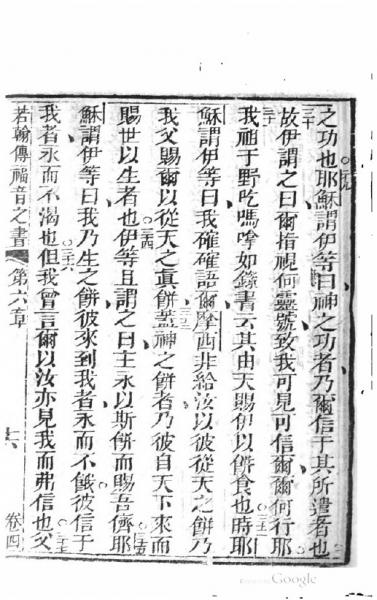 之功也耶穌謂伊等曰神之功者乃爾信于其所遣者也
故伊謂之曰爾指視何靈號致我可見可信爾爾何行耶
我祖于野吃嗎嗱如錄書云其由天賜伊以餅食也時耶
穌謂伊等曰我確確語爾摩西非給汝以彼從天之餅乃
我父賜爾以從天之真餅蓋神之餅者乃彼自天下來而
賜世以生者也伊等且謂之曰主永以斯餅而賜吾儕耶
穌謂伊等曰我乃生之餅彼來到我者永而不餓彼信于
我者永而不渴也但我曾言爾以汝亦見我而弗信也父
若翰傳福音之書 第六章 卷四
Google